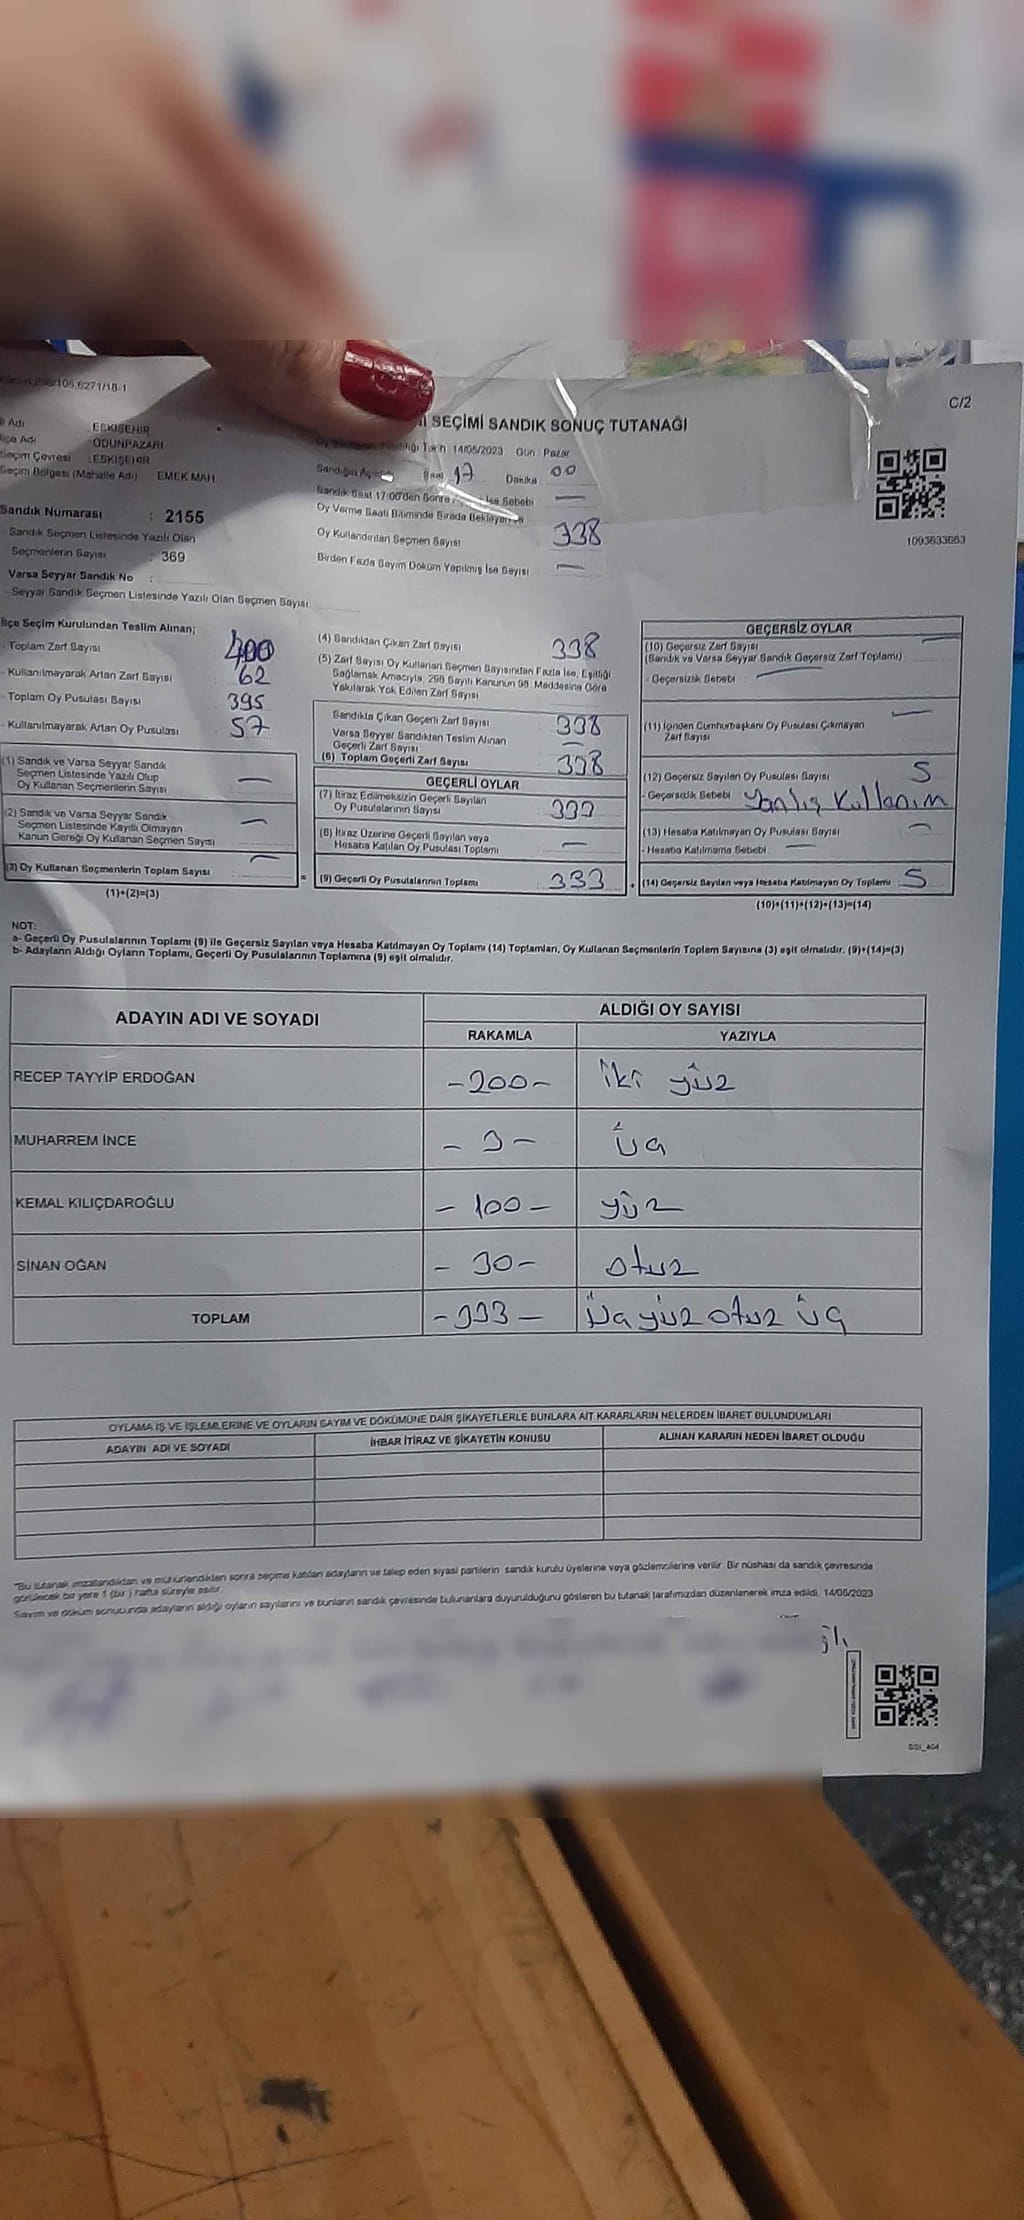 C/2
SEÇİMİ SANDIK SONUÇ TUTANAĞI
Adı ESKİŞEHİR
İlçe Adı ODUNPAZARI
Seçim Çevresi : ESKİŞEHİR
Seçim Bölgesi (Mahalle Adı) EMEK MAH
Sandık Numarası : 2155
Sandık Seçmen Listesinde Yazılı Olan
Seçmenlerin Sayısı : 369
Varsa Seyyar Sandık No :
Seyyar Sandık Seçmen Listesinde Yazılı Olan Seçmen Sayısı
14/05/2023 Gün : Pazar
Sandığın Açıldığı Saat 17 Dakika 00
Sandık Saat 17:00'den Sonra İse Sebebi —
Oy Verme Saati Bitiminde Sırada Bekleyen
Oy Kullandırılan Seçmen Sayısı 338
Birden Fazla Sayım Döküm Yapılmış İse Sayısı —
1093633663
İlçe Seçim Kurulundan Teslim Alınan;
- Toplam Zarf Sayısı 400
- Kullanılmayarak Artan Zarf Sayısı 62
- Toplam Oy Pusulası Sayısı 395
- Kullanılmayarak Artan Oy Pusulası 57
(1) Sandık ve Varsa Seyyar Sandık
Seçmen Listesinde Yazılı Olup
Oy Kullanan Seçmenlerin Sayısı —
(2) Sandık ve Varsa Seyyar Sandık
Seçmen Listesinde Kayıtlı Olmayan
Kanun Gereği Oy Kullanan Seçmen Sayısı —
(3) Oy Kullanan Seçmenlerin Toplam Sayısı —
(1)+(2)=(3)
(4) Sandıktan Çıkan Zarf Sayısı 338
(5) Zarf Sayısı Oy Kullanan Seçmen Sayısından Fazla İse, Eşitliği
Sağlamak Amacıyla, 298 Sayılı Kanunun 98. Maddesine Göre
Yakılarak Yok Edilen Zarf Sayısı
Sandıkta Çıkan Geçerli Zarf Sayısı 338
Varsa Seyyar Sandıktan Teslim Alınan
Geçerli Zarf Sayısı —
(6) Toplam Geçerli Zarf Sayısı 338
GEÇERLİ OYLAR
(7) İtiraz Edilmeksizin Geçerli Sayılan
Oy Pusulalarının Sayısı 333
(8) İtiraz Üzerine Geçerli Sayılan veya
Hesaba Katılan Oy Pusulası Toplamı —
(9) Geçerli Oy Pusulalarının Toplamı 333
GEÇERSİZ OYLAR
(10) Geçersiz Zarf Sayısı
(Sandık ve Varsa Seyyar Sandık Geçersiz Zarf Toplamı) —
- Geçersizlik Sebebi : —
(11) İçinden Cumhurbaşkanı Oy Pusulası Çıkmayan
Zarf Sayısı —
(12) Geçersiz Sayılan Oy Pusulası Sayısı 5
- Geçersizlik Sebebi : Yanlış Kullanım
(13) Hesaba Katılmayan Oy Pusulası Sayısı —
- Hesaba Katılmama Sebebi —
(14) Geçersiz Sayılan veya Hesaba Katılmayan Oy Toplamı 5
(10)+(11)+(12)+(13)=(14)
NOT:
a- Geçerli Oy Pusulalarının Toplamı (9) ile Geçersiz Sayılan veya Hesaba Katılmayan Oy Toplamı (14) Toplamları, Oy Kullanan Seçmenlerin Toplam Sayısına (3) eşit olmalıdır. (9)+(14)=(3)
b- Adayların Aldığı Oyların Toplamı, Geçerli Oy Pusulalarının Toplamına (9) eşit olmalıdır.
ADAYIN ADI VE SOYADI ALDIĞI OY SAYISI
RAKAMLA YAZIYLA
RECEP TAYYİP ERDOĞAN -200- iki yüz
MUHARREM İNCE -3- üç
KEMAL KILIÇDAROĞLU -100- yüz
SİNAN OĞAN -30- otuz
TOPLAM -333- Üç yüz otuz üç
OYLAMA İŞ VE İŞLEMLERİNE VE OYLARIN SAYIM VE DÖKÜMÜNE DAİR ŞİKAYETLERLE BUNLARA AİT KARARLARIN NELERDEN İBARET BULUNDUKLARI
ADAYIN ADI VE SOYADI İHBAR İTİRAZ VE ŞİKAYETİN KONUSU ALINAN KARARIN NEDEN İBARET OLDUĞU
"Bu tutanak imzalandıktan ve mühürlendikten sonra seçime katılan adayların ve talep eden siyasi partilerin sandık kurulu üyelerine veya gözlemcilerine verilir. Bir nüshası da sandık çevresinde
görülecek bir yere 1 (bir) hafta süreyle asılır.
Sayım ve döküm sonucunda adayların aldığı oyların sayılarını ve bunların sandık çevresinde bulunanlara duyurulduğunu gösteren bu tutanak tarafımızdan düzenlenerek imza edildi. 14/05/2023